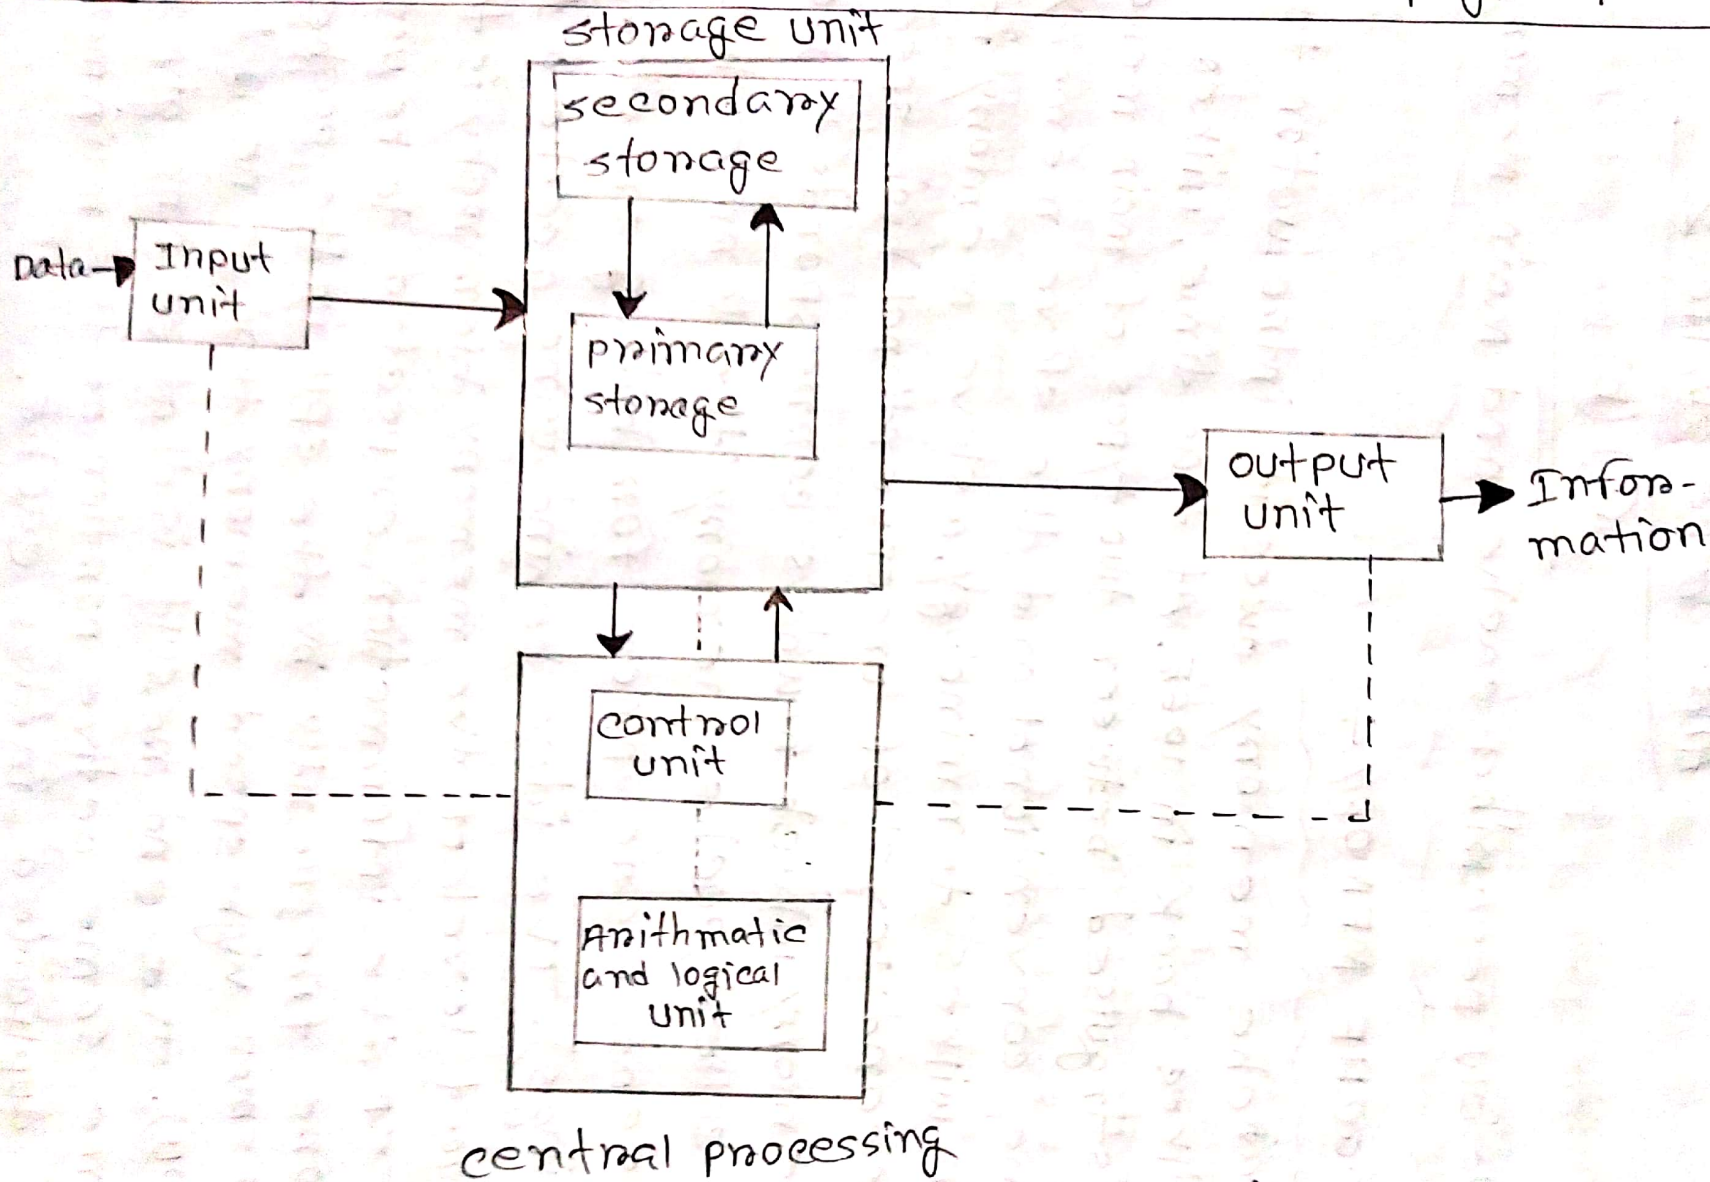 storage unit
secondary
storage
Data
Input
unit
primary
storage
output
unit
Infor-
mation
control
unit
Arithmatic
and logical
unit
central processing